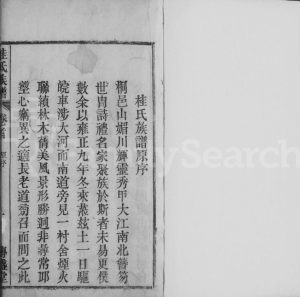 桂氏族譜原序
桐邑山媚川輝靈秀甲大江南北舊笏
世胄詩禮名家聚族於斯者未易更僕
數余以雍正九年冬來蒞茲土一日驅
皖車涉大河而南道旁見一村舍煙火
聯續林木蒨美風景形勝迥非尋常耶
望心竊異之適長老道萄召而問之此
桂氏族譜
卷首
原序
一